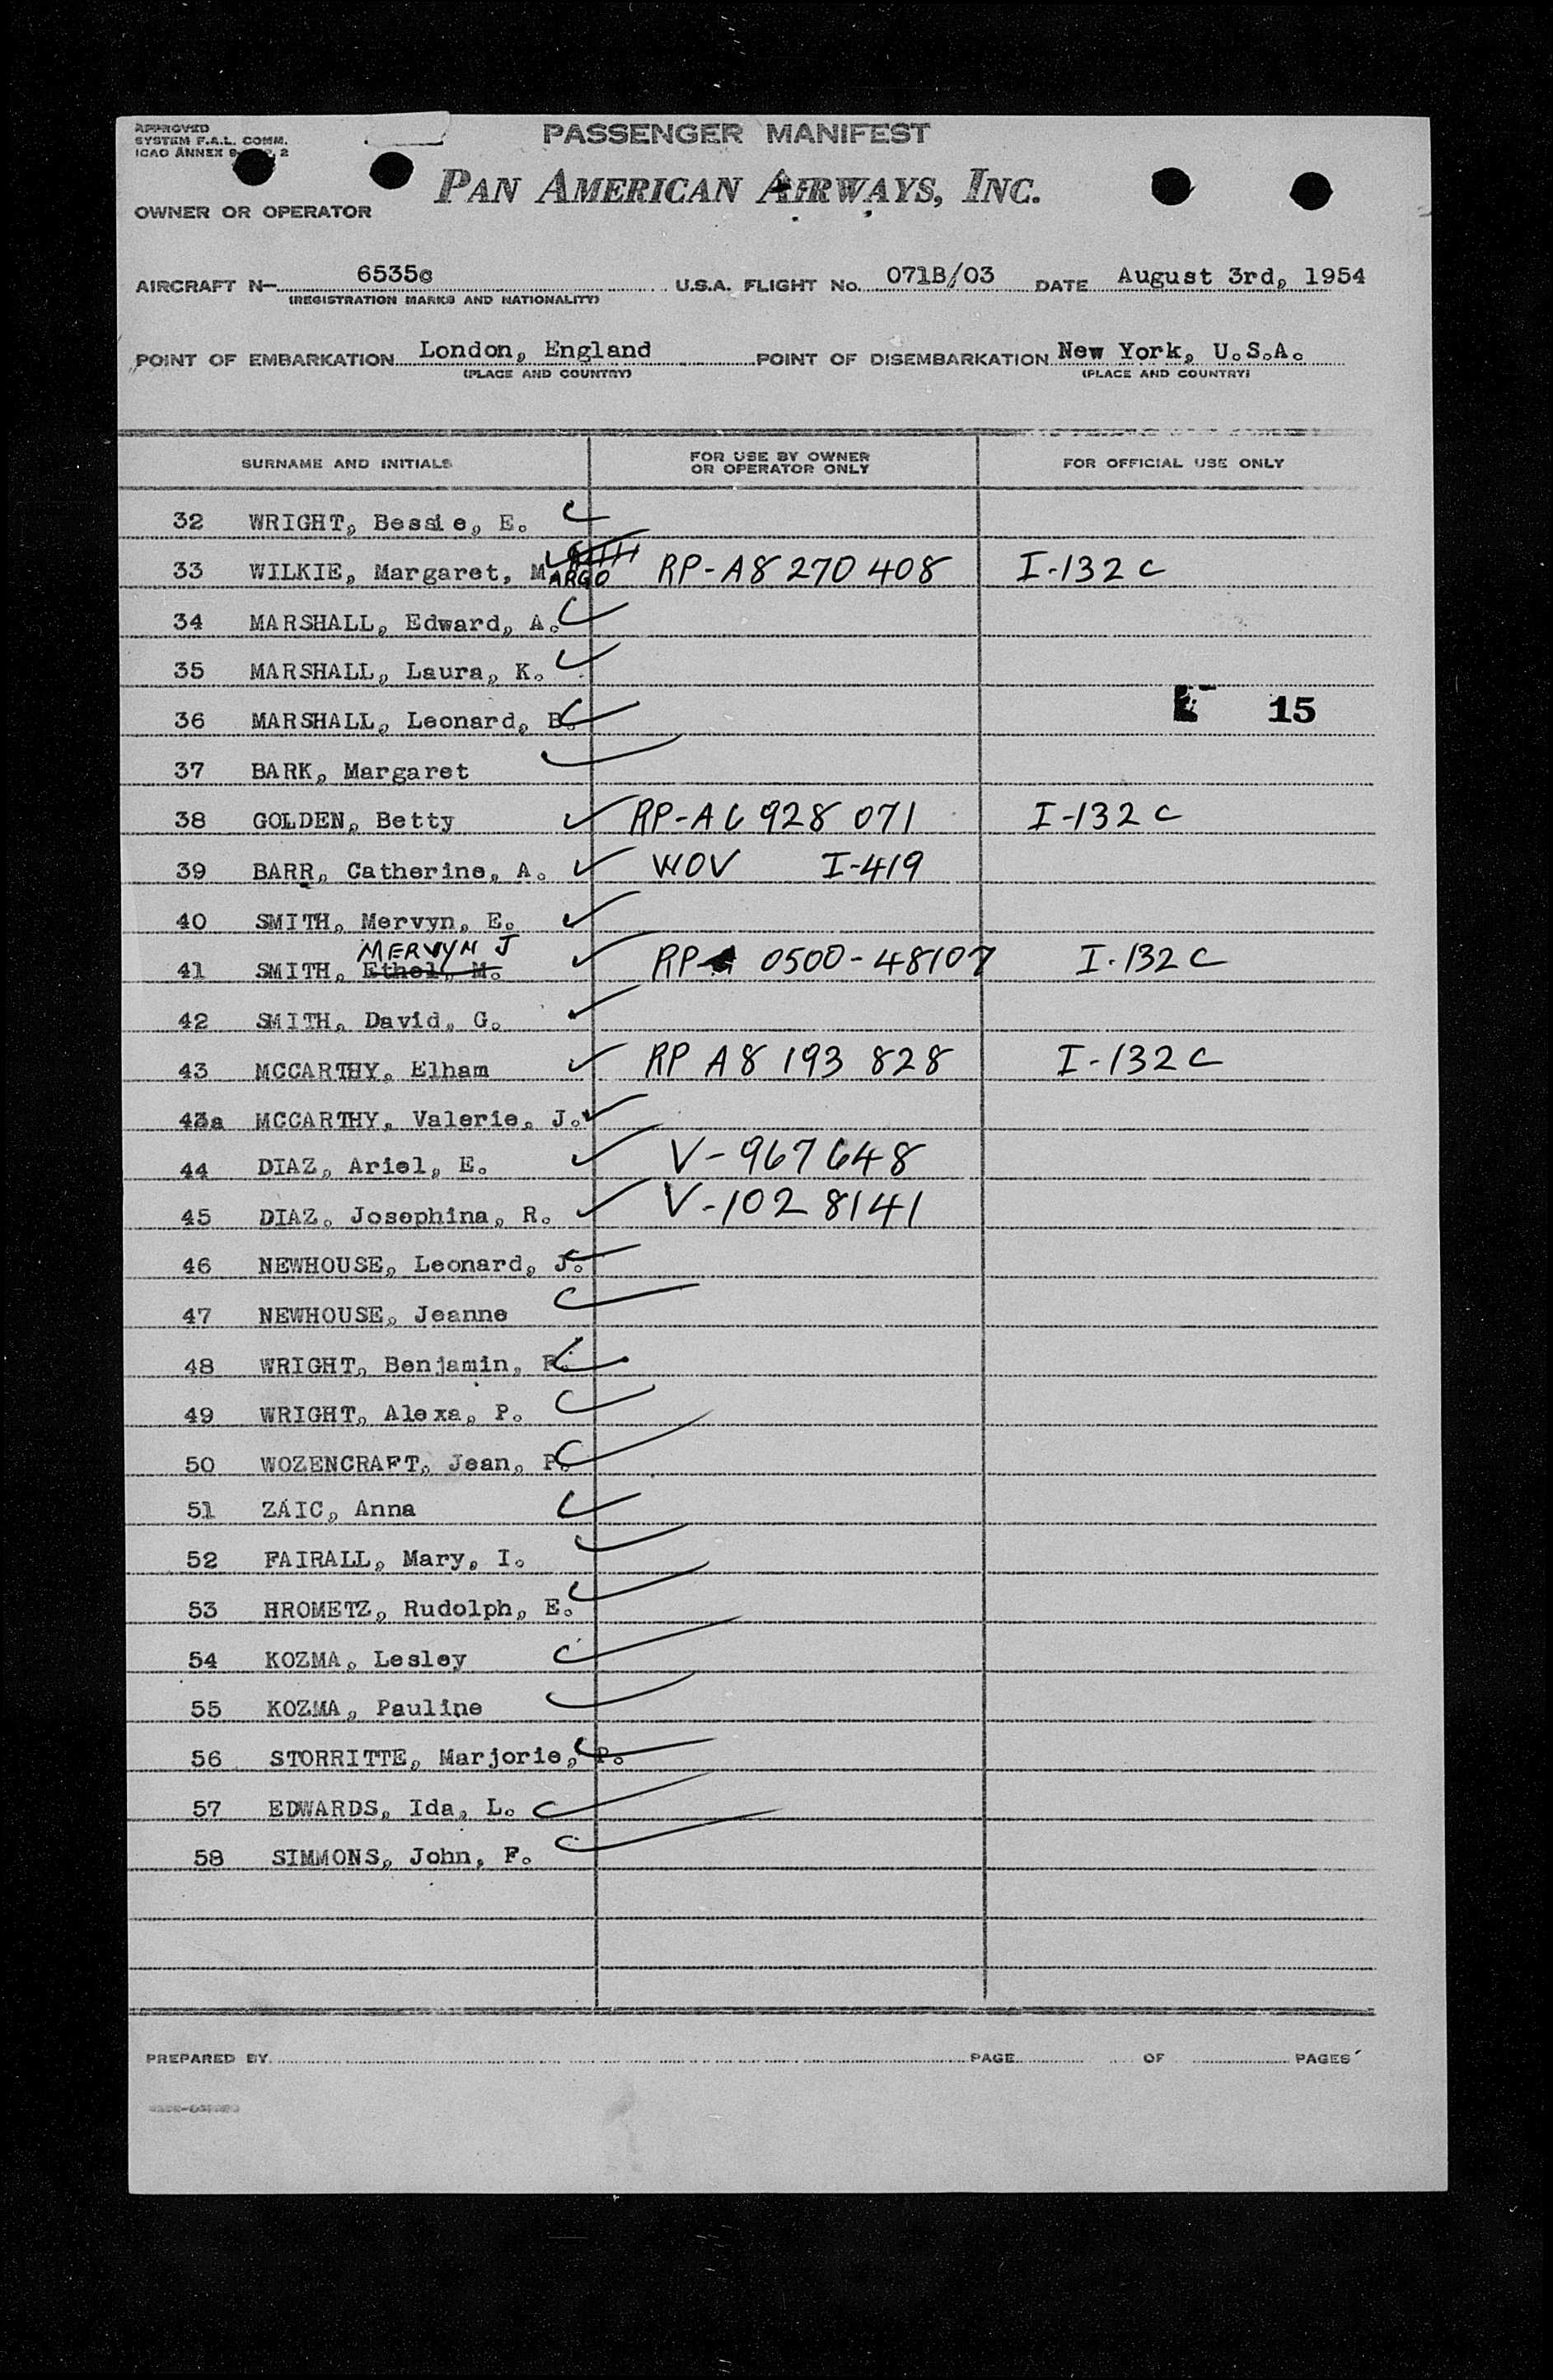 APPROVED
SYSTEM F.A.L. COMM.
ICAO ANNEX 9
PASSENGER MANIFEST
PAN AMERICAN AIRWAYS, INC.
OWNER OR OPERATOR
AIRCRAFT N- 6535c U.S.A. FLIGHT No. 071B/03 DATE August 3rd, 1954
(REGISTRATION MARKS AND NATIONALITY)
POINT OF EMBARKATION London, England POINT OF DISEMBARKATION New York, U.S.A.
(PLACE AND COUNTRY) (PLACE AND COUNTRY)
SURNAME AND INITIALS FOR USE BY OWNER OR OPERATOR ONLY FOR OFFICIAL USE ONLY
32 WRIGHT, Bessie, E.
33 WILKIE, Margaret, M ARGO RP-A8 270 408 I-132 C
34 MARSHALL, Edward, A.
35 MARSHALL, Laura, K.
36 MARSHALL, Leonard, B. 15
37 BARK, Margaret
38 GOLDEN, Betty RP-A6 928 071 I-132 C
39 BARR, Catherine, A. WOV I-419
40 SMITH, Mervyn, E.
MERVYN J
41 SMITH, Ethel, M. RP 0500-48107 I-132 C
42 SMITH, David, G.
43 MCCARTHY, Elham RP A8 193 828 I-132 C
43a MCCARTHY, Valerie, J.
44 DIAZ, Ariel, E. V-967648
45 DIAZ, Josephina, R. V-1028141
46 NEWHOUSE, Leonard, J.
47 NEWHOUSE, Jeanne
48 WRIGHT, Benjamin,
49 WRIGHT, Alexa, P.
50 WOZENCRAFT, Jean, P.
51 ZAIC, Anna
52 FAIRALL, Mary, I.
53 HROMETZ, Rudolph, E.
54 KOZMA, Lesley
55 KOZMA, Pauline
56 STORRITTE, Marjorie, P.
57 EDWARDS, Ida, L.
58 SIMMONS, John, F.
PREPARED BY PAGE OF PAGES